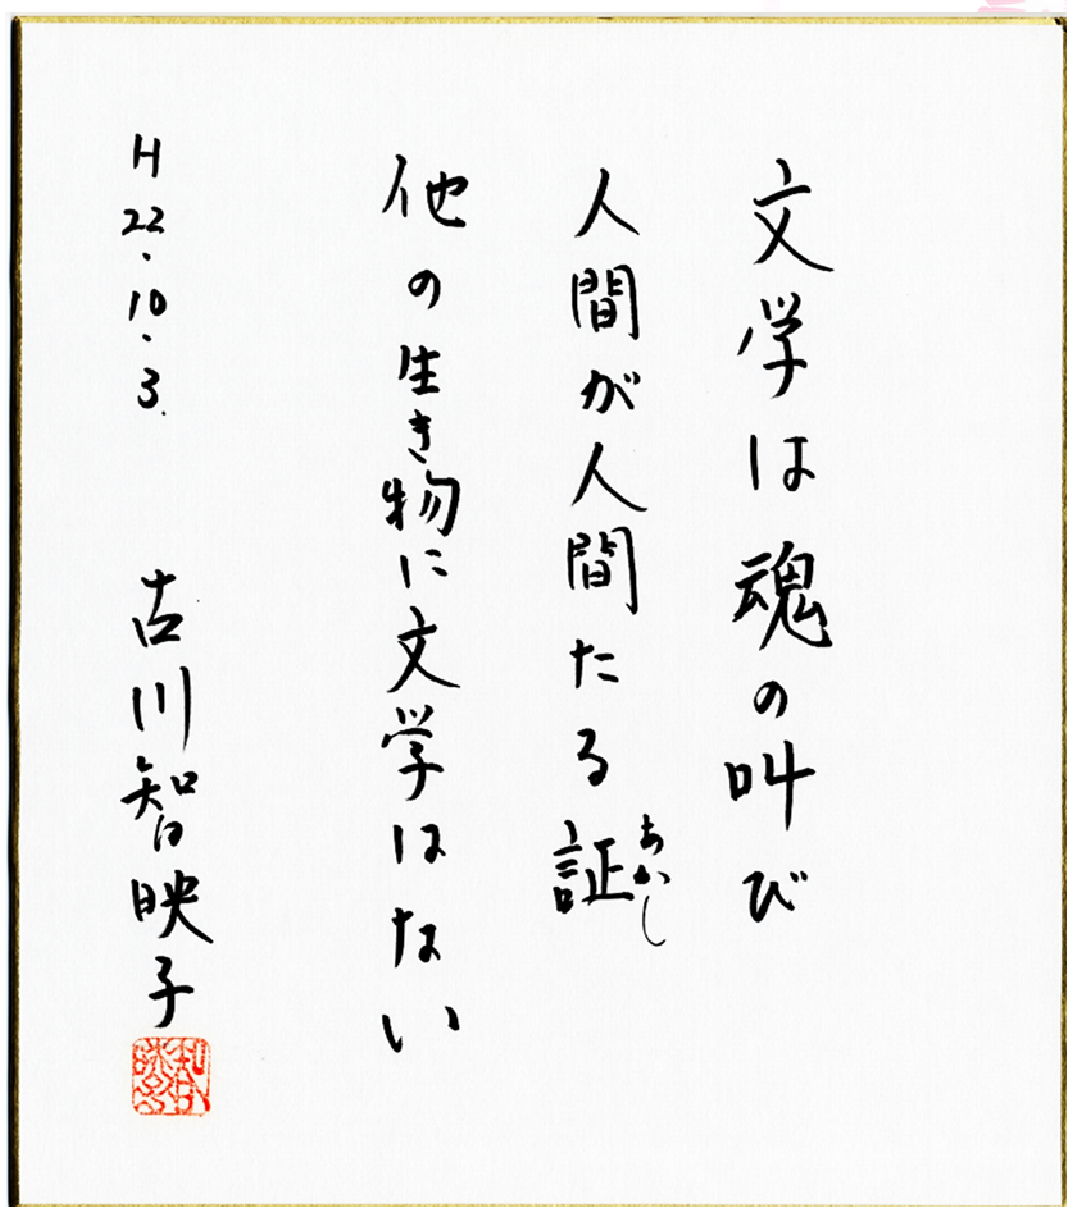 文学は魂の叫び
人間が人間たる証
あかし
他の生き物に文学はない
H22.10.3.
古川智映子